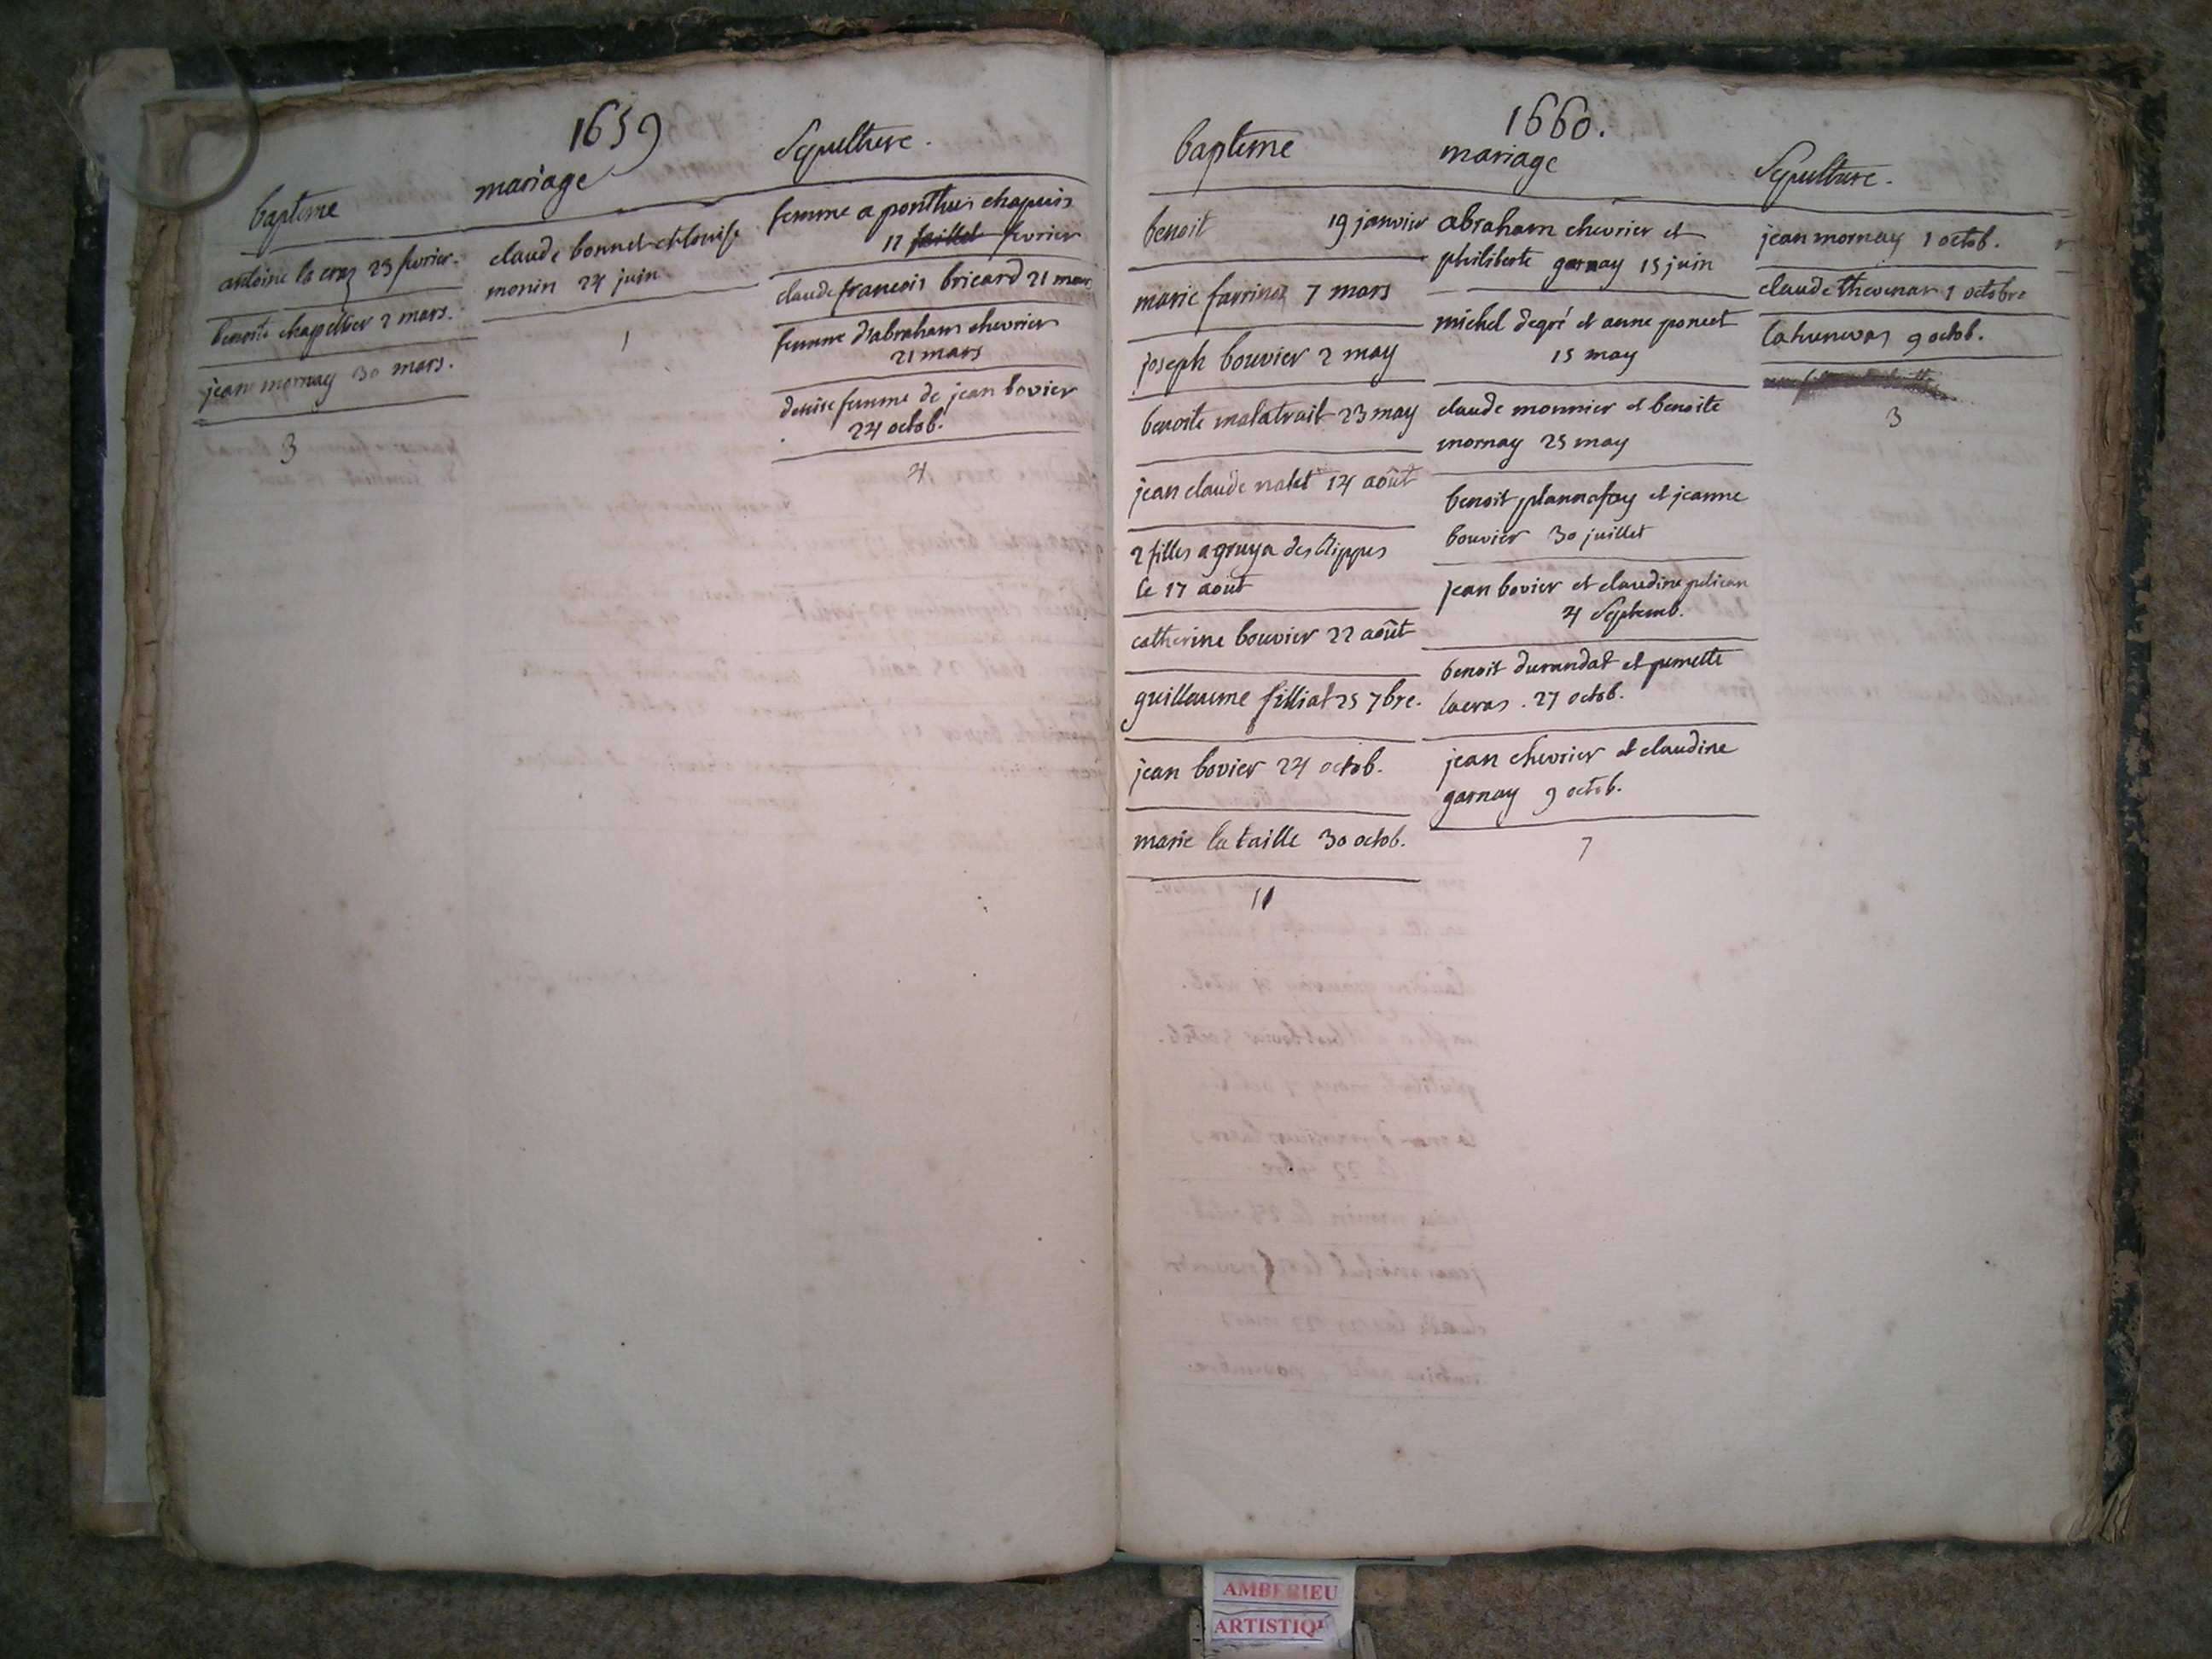 1659
bapteme
antoine la cras 23 fevrier.
benoite chapellier 2 mars.
jean mornay 30 mars.
3
mariage
claude bonnet et louise
monin 24 juin
1
Sepulture.
femme a ponthus chapuis
12 juillet fevrier
claude francois bricard 21 mars
femme d'abraham chevrier
21 mars
denise femme de jean bovier
24 octob.
4
1660.
bapteme
benoit 19 janvier
marie 7 mars
joseph bouvier 2 may
benoite malatrait 23 may
jean claude nalet 14 août
2 filles a gruya des
le 17 aout
catherine bouvier 22 août
guillaume filliat 25 7bre.
jean bovier 24 octob.
marie la taille 30 octob.
11
mariage
abraham chevrier et
philiberte garnay 15 juin
michel degré et anne poncet
15 may
claude monnier et benoite
mornay 25 may
benoit et jeanne
bouvier 30 juillet
jean bovier et claudine pelican
4 Septemb.
benoit durandat et pernette
lacras . 27 octob.
jean chevrier et claudine
garnay 9 octob.
7
Sepulture.
jean mornay 1 octob.
claude thevenar 1 octobre
9 octob.
3
AMBERIEU
ARTISTIQ